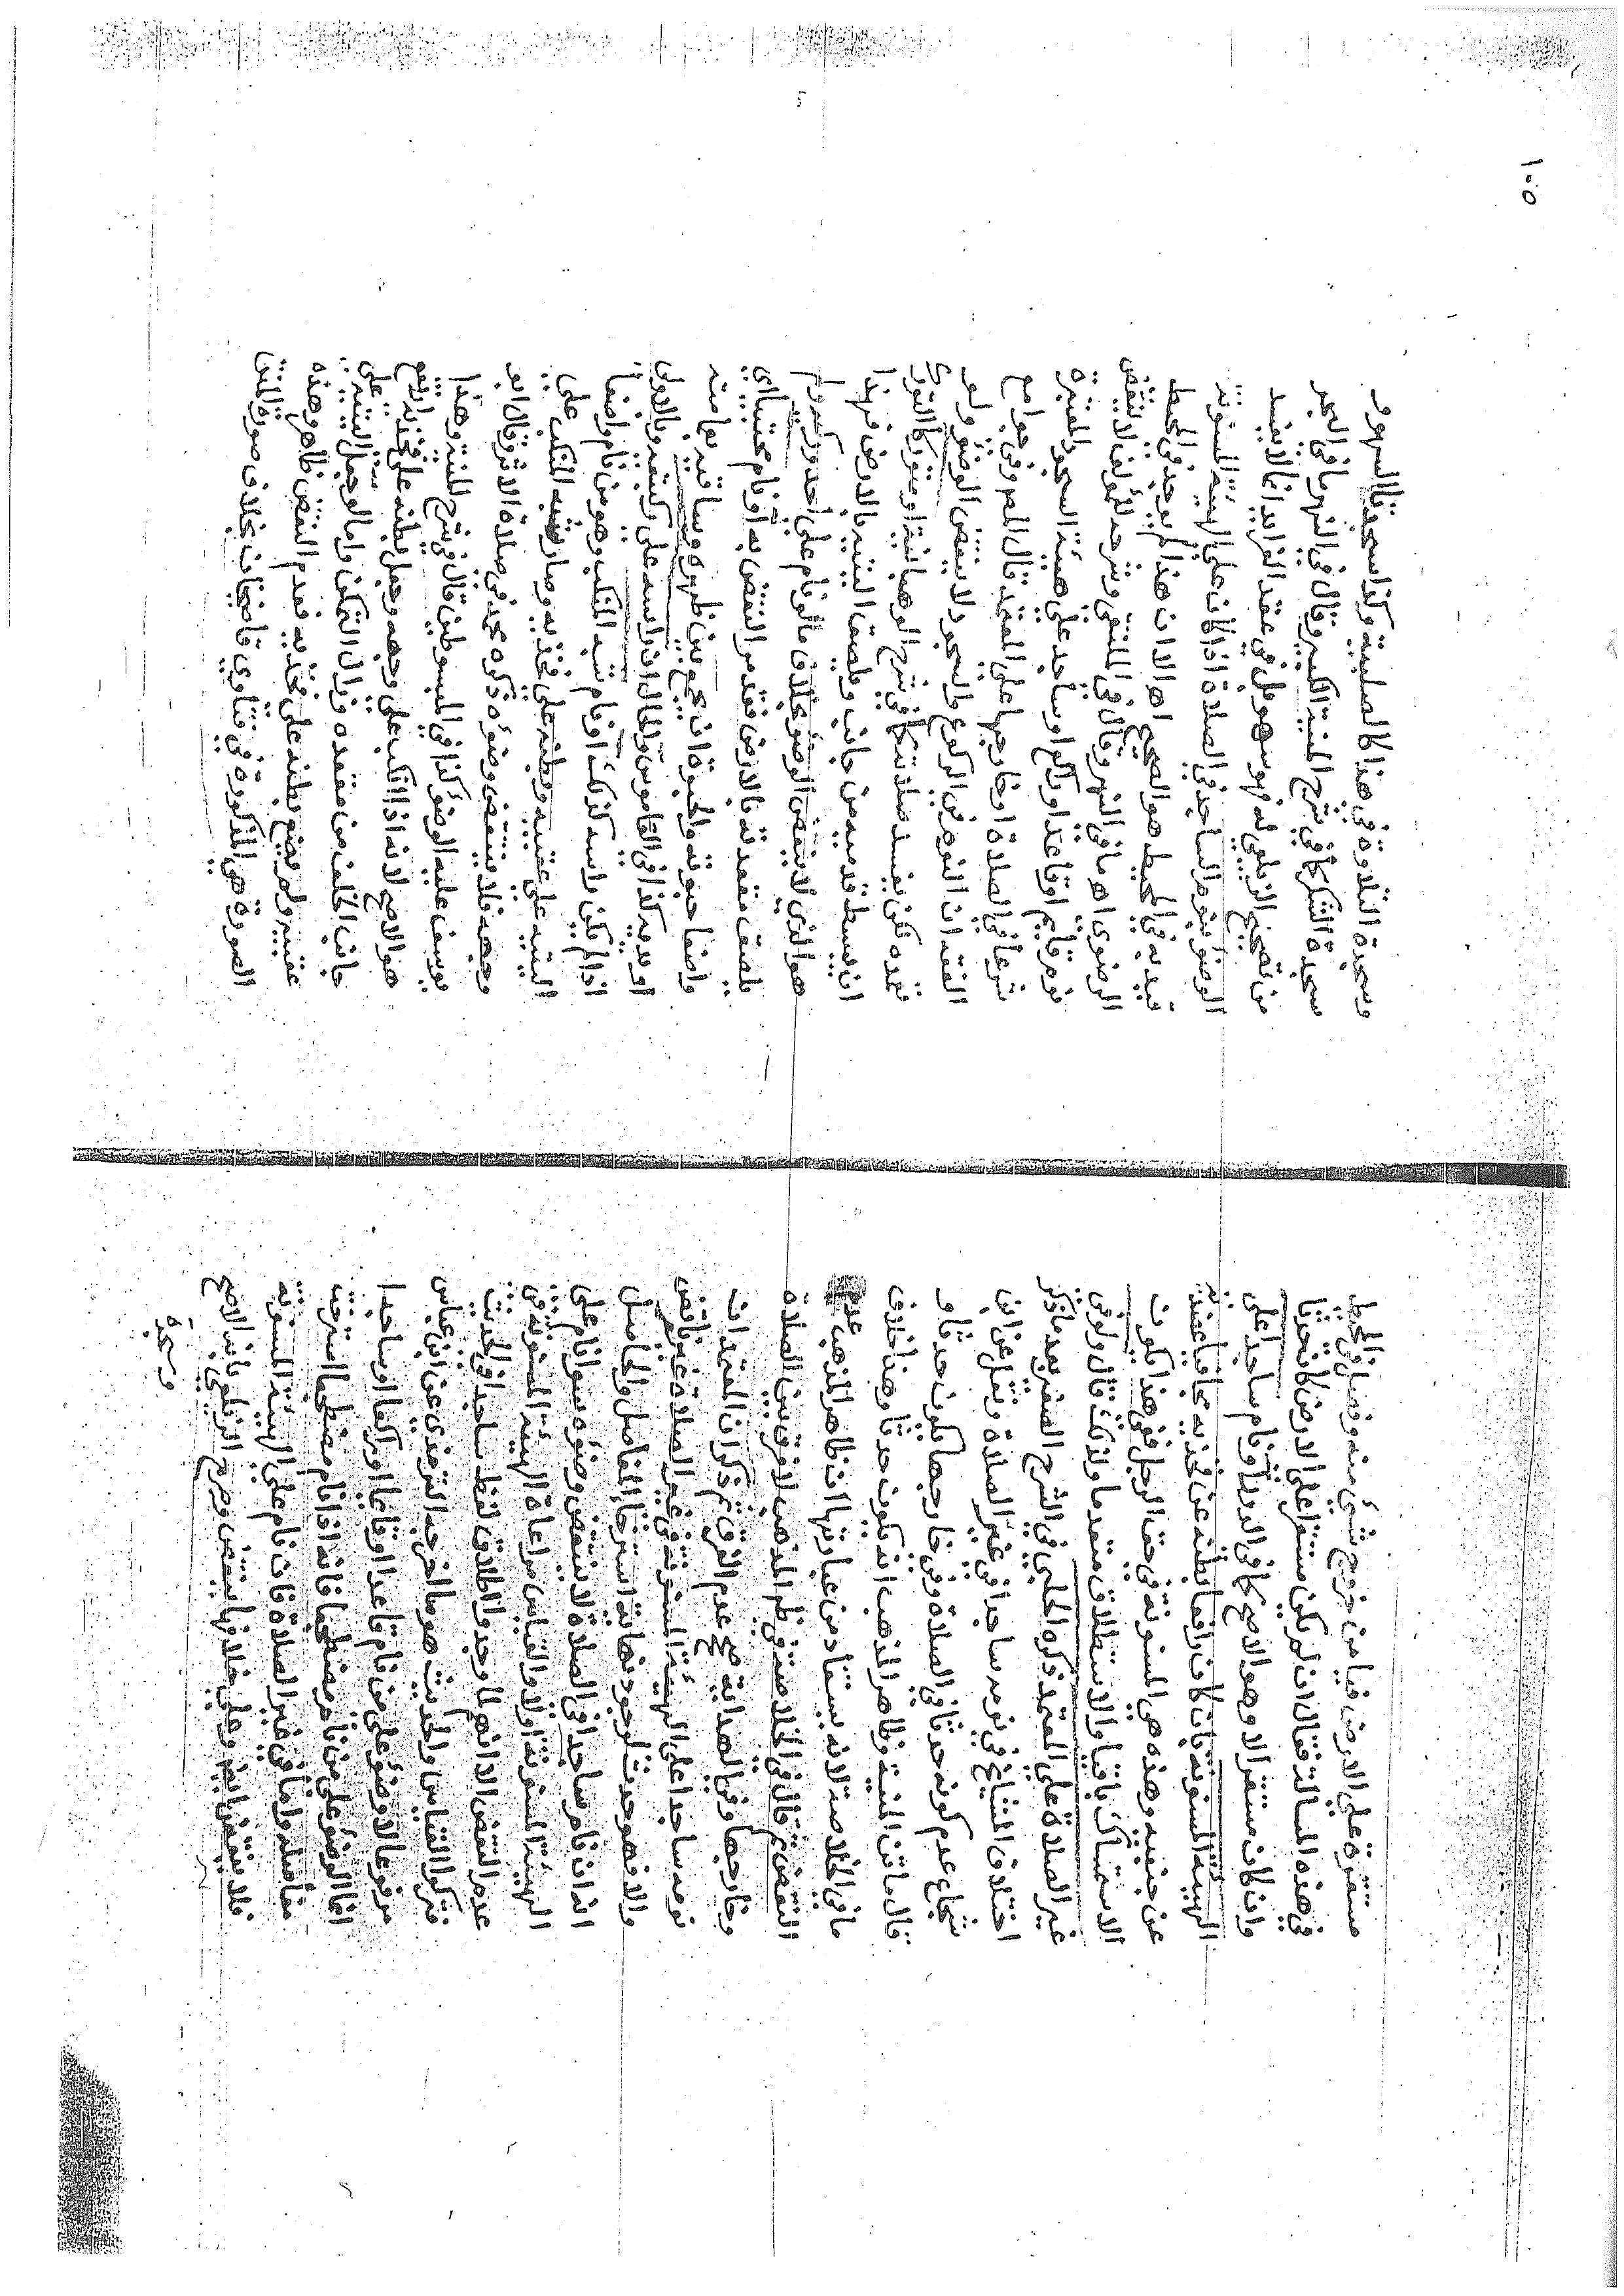 مستقرة على الارض فيامن خروج شيء منه وفصل في المحيط
في هذه المسالة فقال ان لم يكن مستقرا على الارض كان حدثا
وان كان مستقرا لا وهو الاصح كما في الدرر او نام ساجدا على
الهيئة المسنونة بان كان رافعا بطنه عن فخذيه مجافيا عضديه
عن جنبيه وهذه هي المسنونة في حق الرجل ففي هذا يكون
الاستمساك باقيا والاستطلاق منعدما ولذلك قال ولو في
غير الصلاة على المعتمد ذكره الحلبي في الشرح الصغير بعد ما ذكر
اختلاف المشايخ في نومه ساجدا في غير الصلاة ونقل عن ابن
شجاع عدم كونه حدثا في الصلاة وفي خارجها يكون حدثا و
قال ماتن المنية وظاهر المذهب انه يكون حدثا وهذا خلاف
ما في الخلاصة لانه يستفاد من عبارتها ان ظاهر المذهب عدم
النقض ثم قال في الخلاصة في ظاهر المذهب لا فرق بين الصلاة
وخارجها وفي الهداية صح عدم الفرق ثم ذكر ان المعتمد ان
نومه ساجدا على الهيئة المسنونة في غير الصلاة غير ناقض
والا فهو حدث لوجود نهاية استرخاء المفاصل والحاصل
انه ان نام ساجدا في الصلاة لا ينتقض وضوئه سواء نام على
الهيئة المسنونة اولا والقياس مراعاة الهيئة المسنونة في
عدم النقض الا انهم لما وجدوا اطلاق لفظ ساجدا في الحديث
تركوا القياس والحديث هو ما اخرجه الترمذي عن ابن عباس
مرفوعا لا وضوء على من نام قاعدا او قائما او راكعا او ساجدا
انما الوضوء على من نام مضطجعا فانه اذا نام مضطجعا استرخت
مفاصله واما في غير الصلاة فان نام على الهيئة المسنونة
فلا ينتقض ايضا وعلى خلافها ينتقض وصرح الزيلعي بانه الاصح
وسجدة
١٠٥
وسجدة التلاوة في هذا كالصلبية وكذا سجدتا السهو
سجدة الشكر كما في شرح المنية الكبير وقال في النهر ما في البحر
من تصحيح الزيلعي له فهو سهو بل في عقد الفرايد انما لا يفسد
الوضوء نوم الساجد في الصلاة اذا كان على الهيئة المسنونة
قيد به في المحيط هو الصحيح اهـ الا ان هذا لم يوجد في المحيط
الرضوي اهـ ما في النهر وقال في الملتقى وشرحه للمؤلف لا ينقض
نوم قايم او قاعد او راكع او ساجد على هيئة السجود المعتبرة
شرعا في الصلاة او خارجها على المعتمد قال المص وفي جوامع
الفقه ان النوم في الركوع والسجود لا ينقض الوضوء ولو
تعمده لكن يفسد صلاته كما في شرح الوهبانية او متوركا التورك
ان يبسط قدميه من جانب ويلصق اليتيه بالارض فهذا
هو الذي لا ينقض الوضوء بخلاف ما لو نام على احد وركيه ولم
يلصق مقعدته بالارض فقد مر النقض به او نام محتبيا اي
واضعا حبوته والحبوة ان يجمع بين ظهره وساقيه بعمامته
او يديه كذا في القاموس والحال ان راسه على ركبتيه وبالاولى
اذا لم يكن راسه كذلك او نام شبه المنكب وهو من نام واضعا
اليتيه على عقبيه وبطنه على فخذيه وصار شبه المنكب على
وجهه فلا ينتقض وضوءه ذكره محمد في صلاة الاثر وقال ابو
يوسف عليه الوضوء كذا في المبسوطين قال في شرح المنية وهذا
هو الاصح لانه اذا انكب على وجهه وجعل بطنه على فخذيه ارتفع
جانب الخلف من مقعده وزال التمكن واما لو جعل اليتيه على
عقبيه ولم يضع بطنه على فخذيه فعدم النقض ظاهر وهذه
الصورة هي المذكورة في فتاوي قاضيخان بخلاف صورة المتن